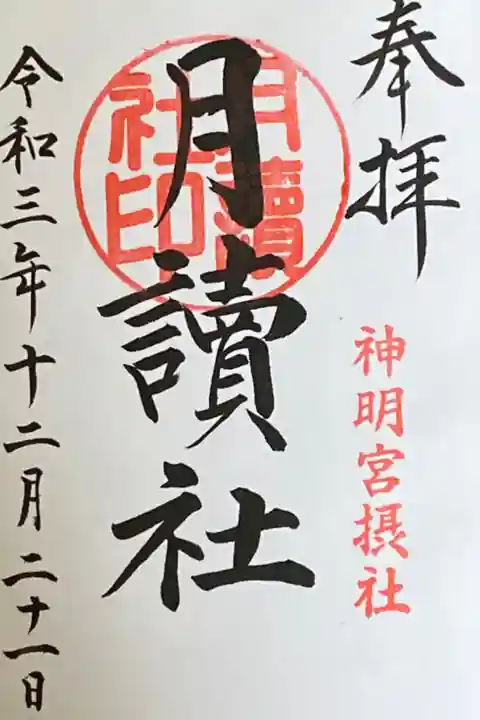 奉拝
神明宮摂社
月讀社
月讀社印
令和三年十二月二十一日